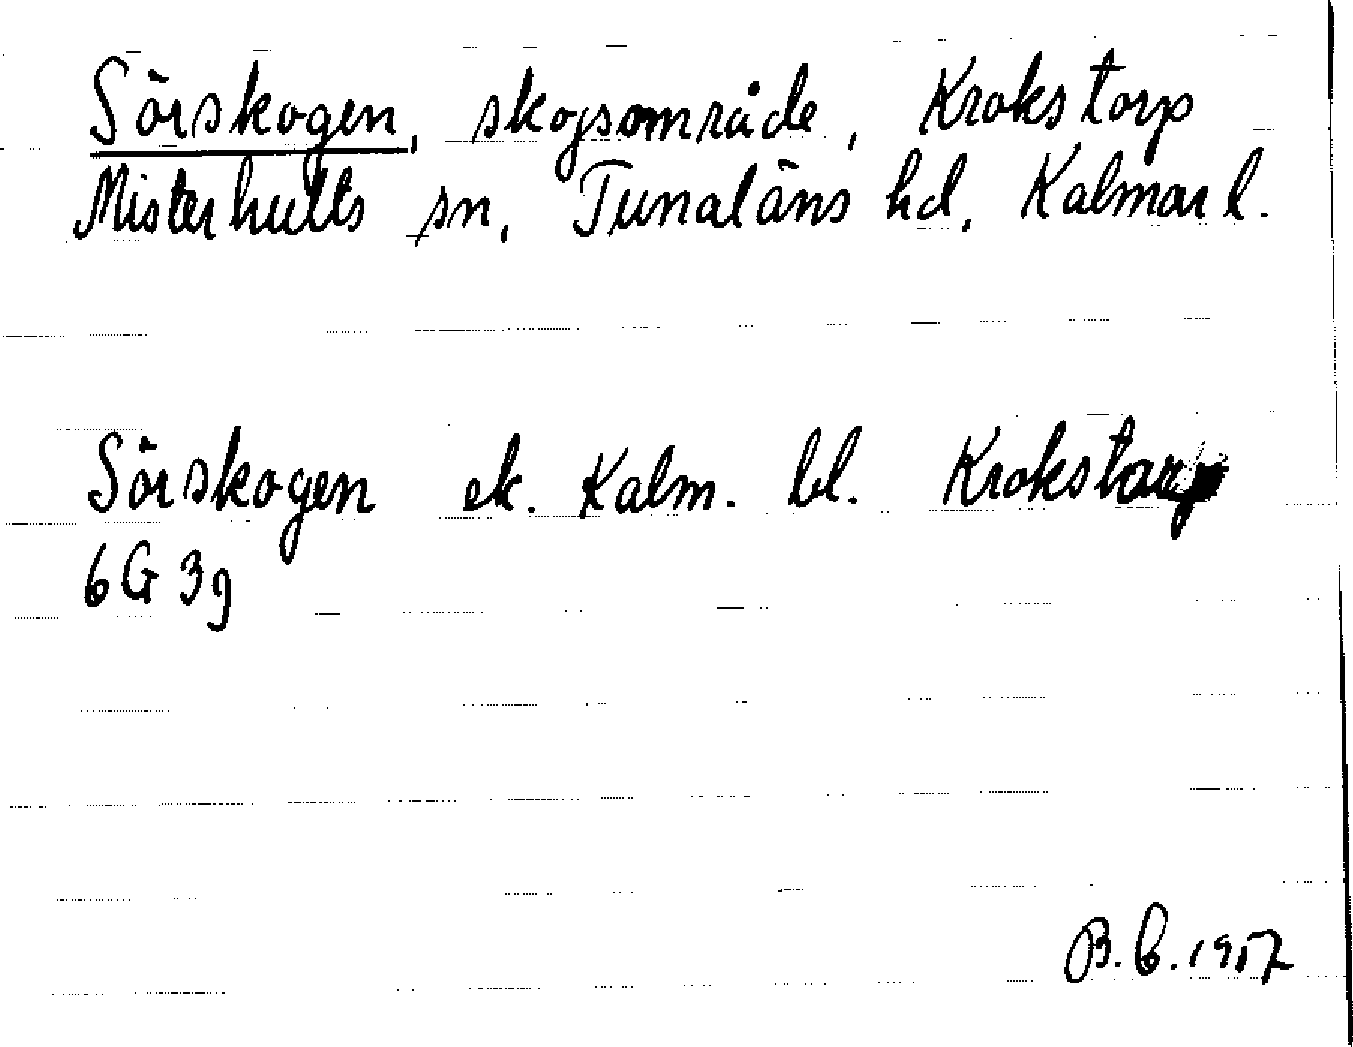 Sörskogen, skogsområde, Krokstorp
Misterhults sn, Tunaläns hd, Kalmar l.
Sörskogen ek. Kalm. bl. Krokstorp
6G 3g
B.G.1957